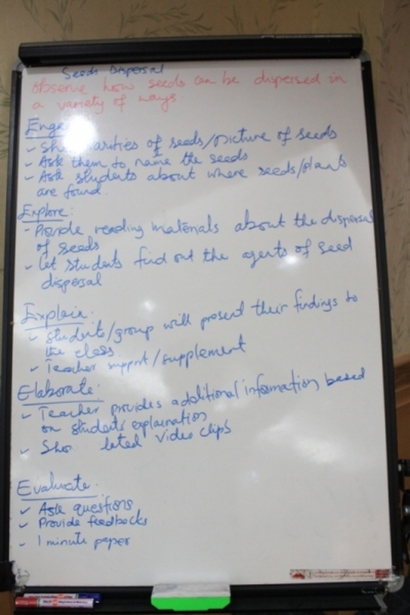 Seeds Dispersal
Observe how seeds can be dispersed in
a variety of ways
Enga
- Sh varities of seeds/picture of seeds
- Ask them to name the seeds
- Ask students about where seeds/plants
are found.
Explore:
- Provide reading materials about the dispersal
of seeds
- Let students find out the agents of seed
dispersal
Explain:
- Students/group will present their findings to
the class
- Teacher support/supplement
Elaborate:
- Teacher provides additional information based
on students explaination
- Sho lated video clips
Evaluate:
- Ask questions
- Provide feedbacks
- 1 minute paper